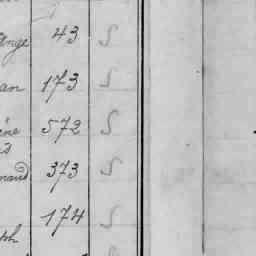 Ange 43 S
an 173 S
ène 572 S
s
nand 373 S
174 S
ph